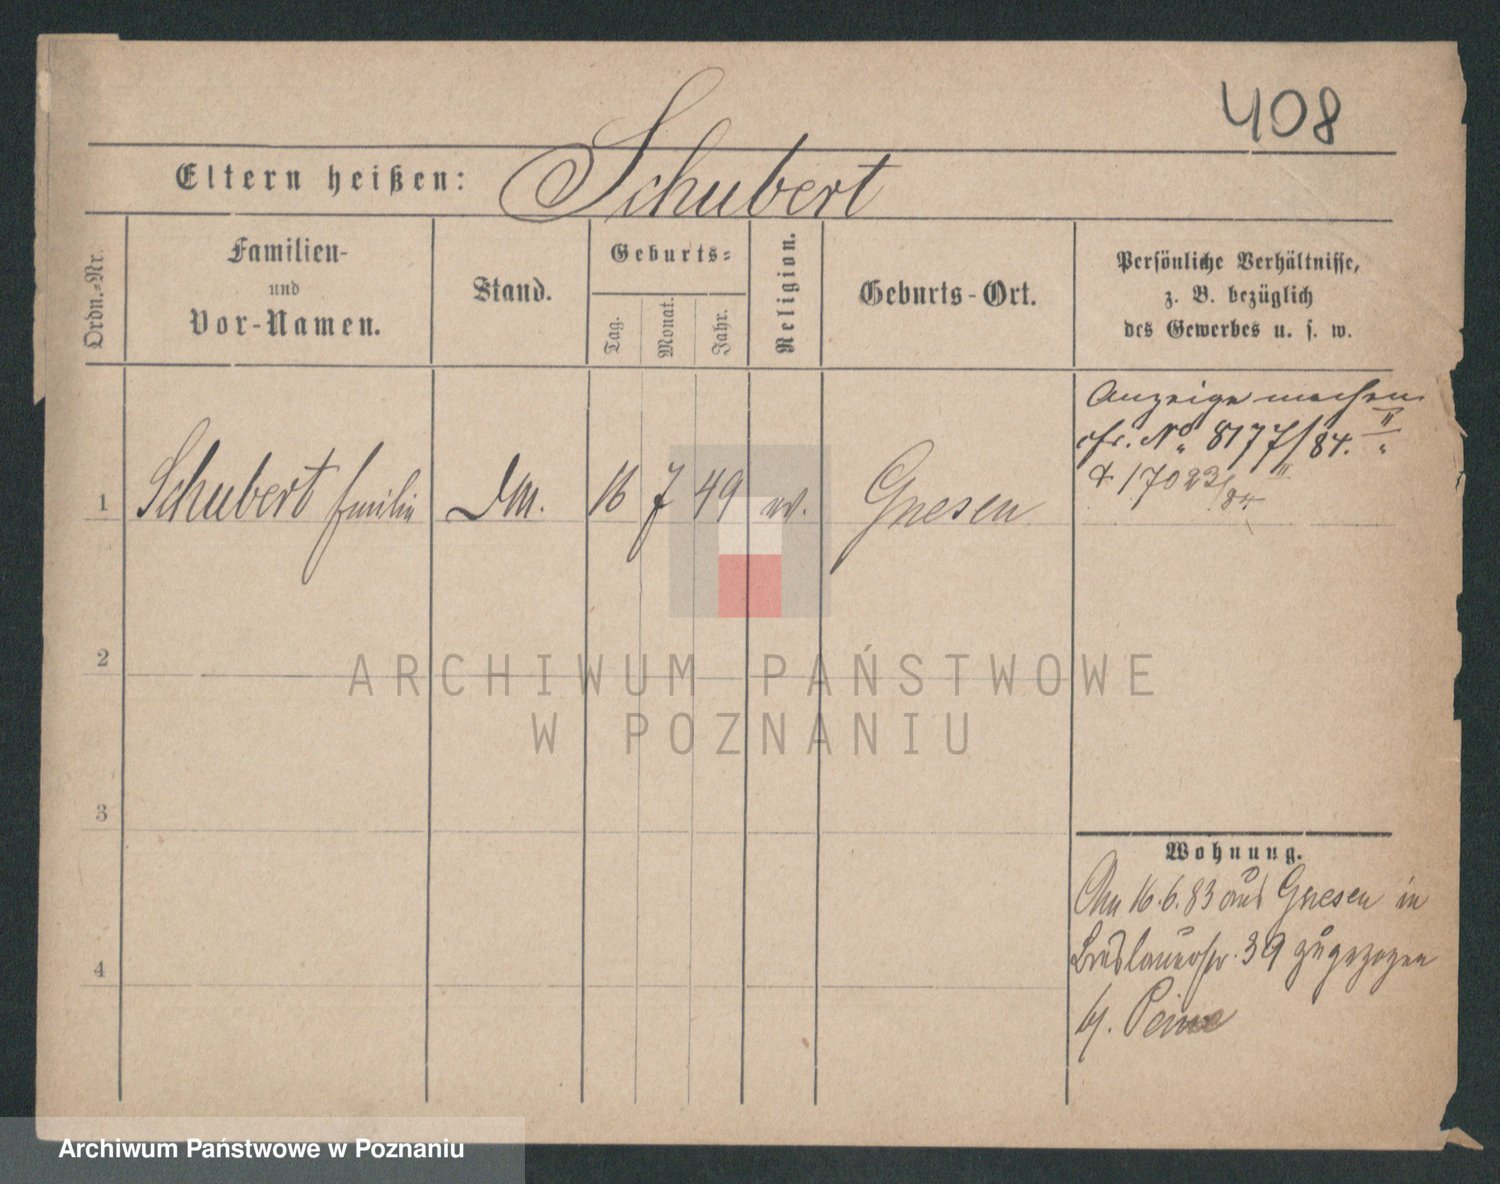 408
Eltern heißen: Schubert
Ordn.-Nr.
Familien-
und
Vor-Namen.
Stand.
Geburts-
Tag.
Monat.
Jahr.
Religion.
Geburts-Ort.
Persönliche Verhältnisse,
z. B. bezüglich
des Gewerbes u. s. w.
Anzeige machen
cfr. No. 8177/84. II
& 17023/84 III
1 Schubert Emilie 16 7 49 Gnesen
2
3
4
Wohnung.
Am 16.6.83 aus Gnesen in
Breslauerstr. 39 zugezogen
b/.
ARCHIWUM PAŃSTWOWE
W POZNANIU
Archiwum Państwowe w Poznaniu